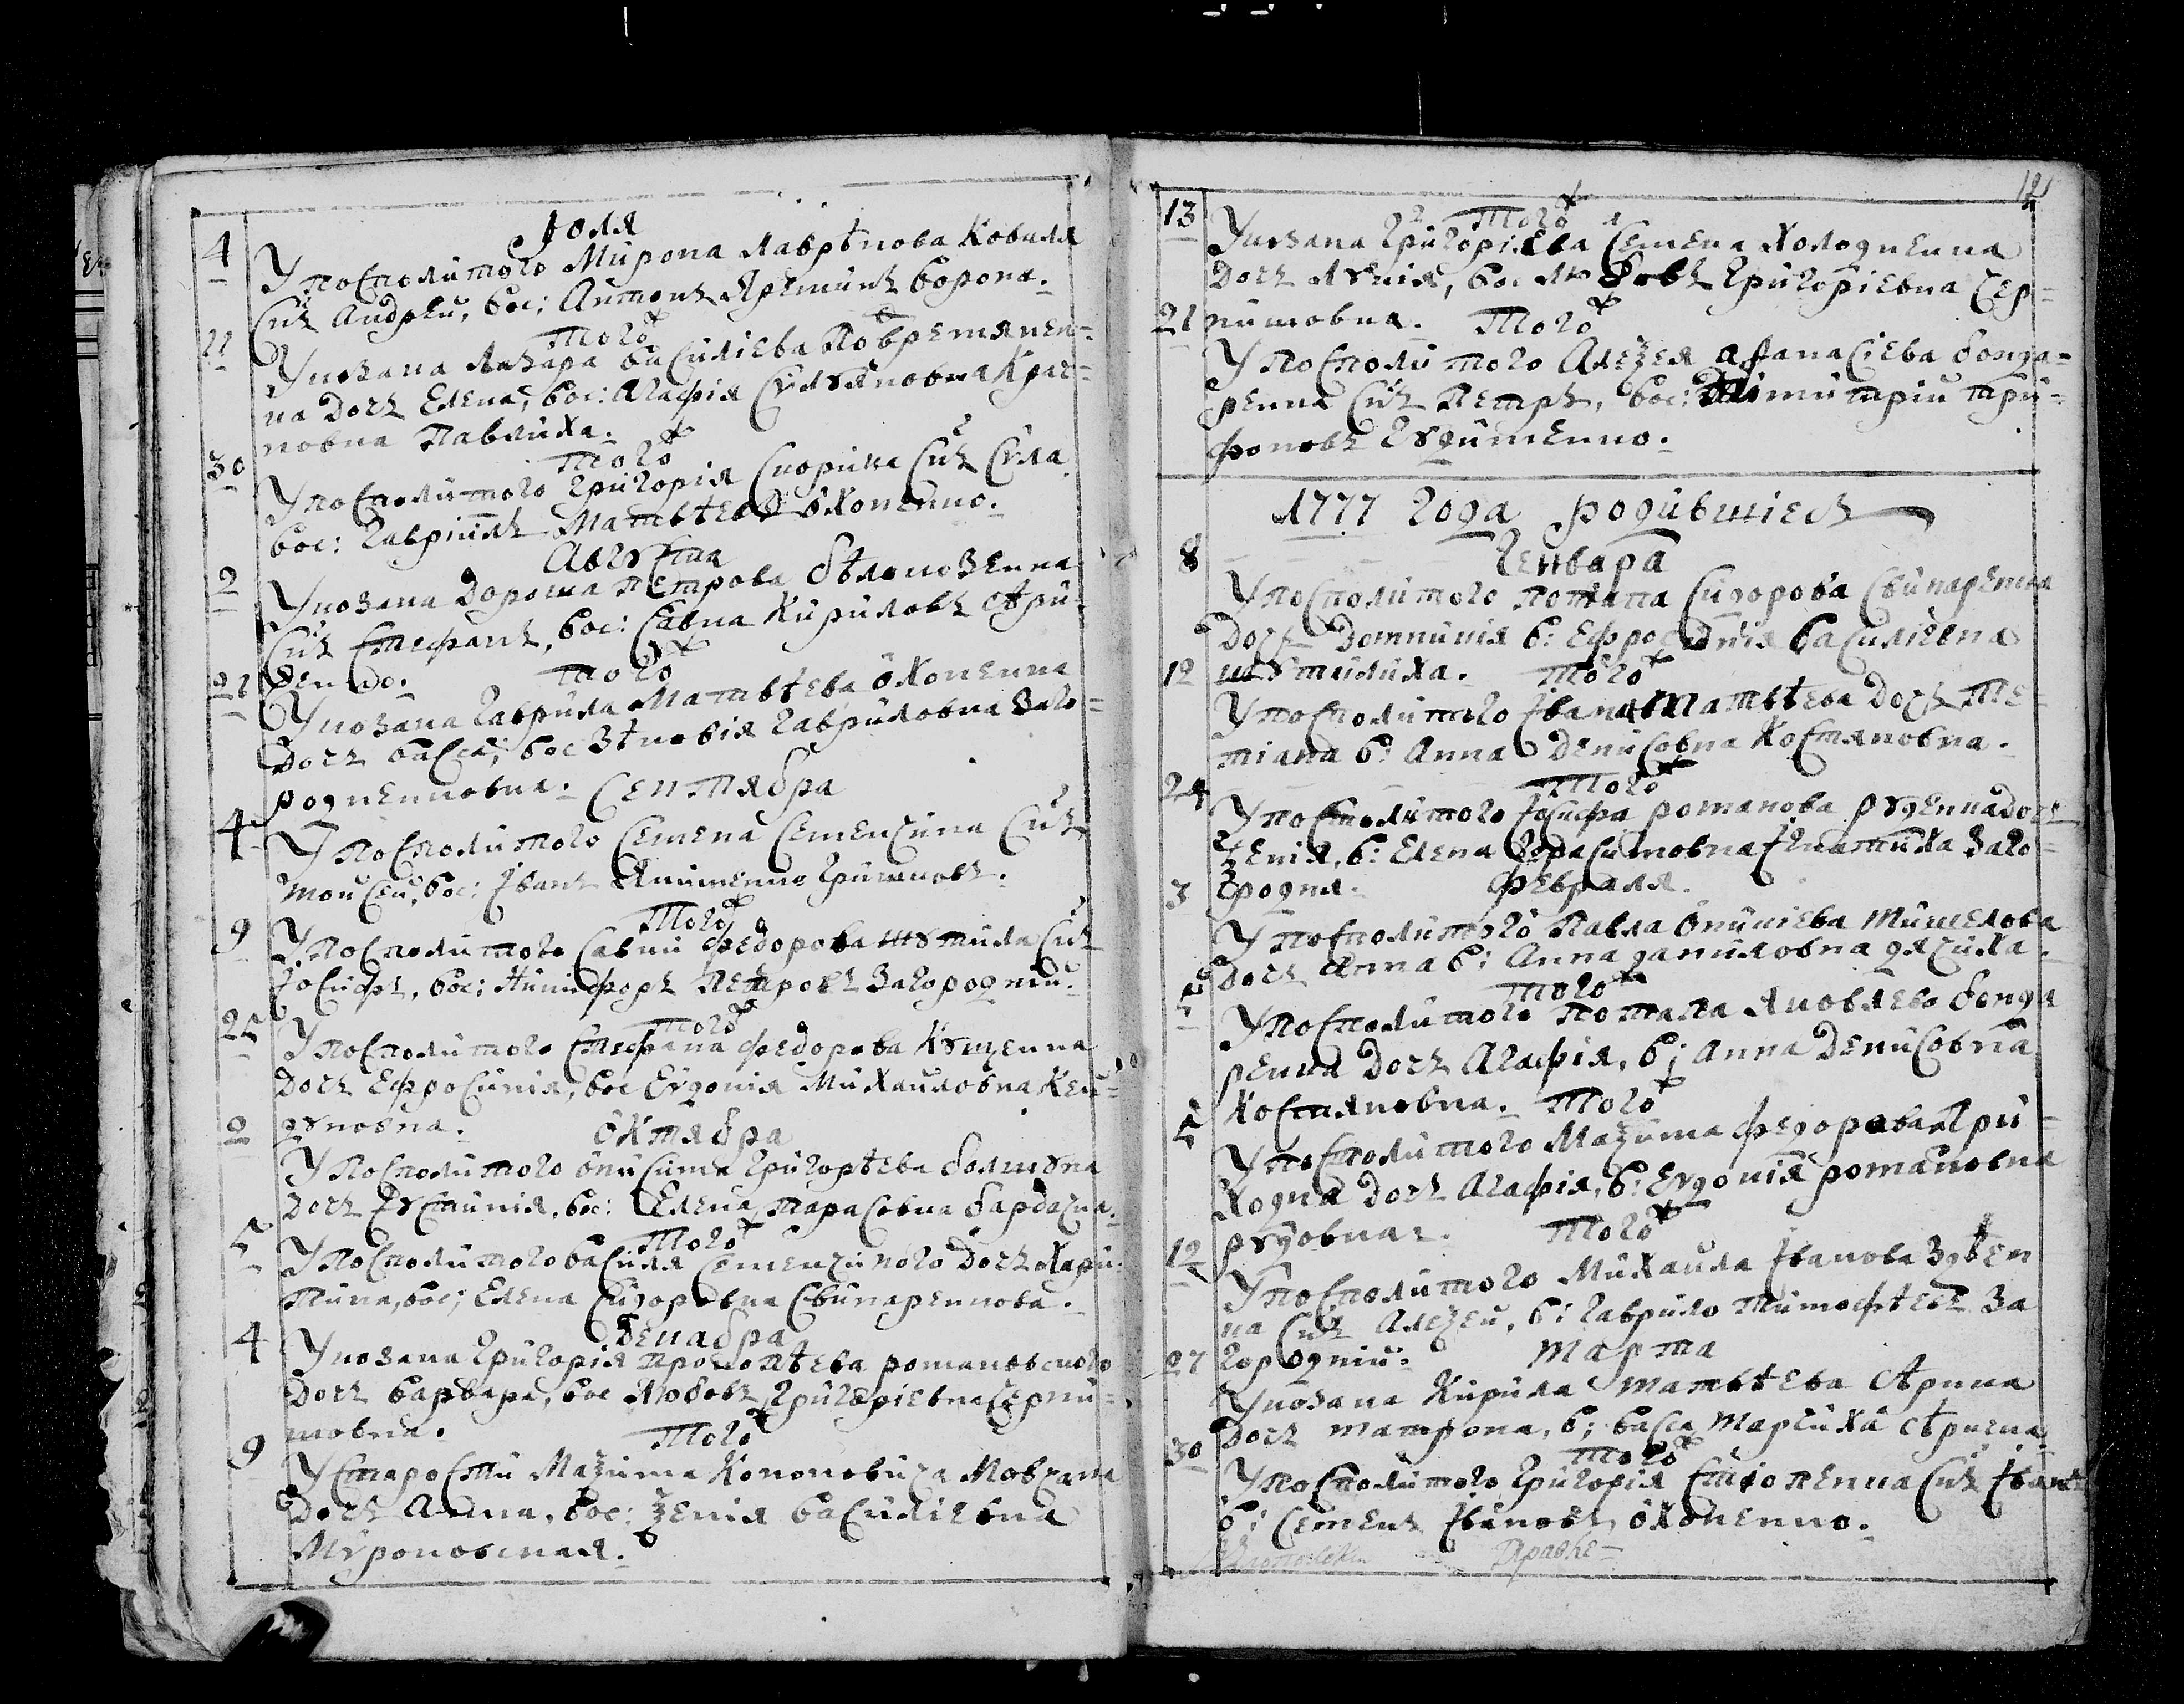 Іюля
4 У посполитого Мирона Лаврѣнова Коваля
Сн҃ъ Андреи, вос: Антонъ Яреминъ Ворона.
Того ж
У козака Лазара Василіева Повремянен=
ка Дочъ Елена, вос: Агафія
новна Павлиха.
Того ж
30 У посполитого Григорія Скорика Сн҃ъ Сила
вос: Гавріилъ Матвѣевъ Охоненко.
Августа
2 У козака Дороша Петрова Бѣлокозенка
Сн҃ъ Стефанъ, вос: Савка Кириловъ Ѧри=
ченко. Того ж
21 У козака Гаврила Матвѣева Охоненка
Дочъ Васса, вос Зѣновія Гавриловна Заго=
родненковна. Септября
4 У посполитого Семена Семенсина Сн҃ъ
Моисеи, вос: Іванъ Якименко Гришковъ.
Того ж
9 У посполитого Савки Федорова Шумила Сн҃ъ
Іосифъ, вос: Никифоръ Петровъ Загородній.
Того ж
25 У посполитого Стефана Федорова Кущенка
Дочъ Ефросинія, вос Евдокія Михаиловна Кеи=
дуковна. Октября
2 У посполитого Онисима Григорѣева Болшука
Дочъ Іустинія, вос: Елена Тарасовна Бардаска.
Того ж
5 У посполитого Василя Семенсиного Дочъ Хари=
тина, вос: Елена Сидоровна Свинаренкова.
Декабра
4 У козака Григорія Прокопѣева Романовского
Дочъ Варвара, вос Любовъ Григоріевна Серпи=
товна.
Того ж
9 У старости Маѯима Кононовича Мовчана
Дочъ Анна, вос: Ѯенія Василіевна
Мироновская.
121
Того ж
13 У козака Григоріева Семена Холодненка
Дочъ Акулія, вос Любовъ Григоріевна Сер=
питовна. Того ж
21 У посполитого Алеѯея Афанасіева Бонда=
ренка Сн҃ъ Петръ, вос: Димитріи Три=
фоновъ Евдименко.
1777 года родившіесъ
Генвара
8 У посполитого Потапа Сидорова Свинаренка
Дочъ Домникія в: Ефросинія Василіевна
Шумилиха. Того ж
12 У посполитого Івана Матвѣева Дочъ Те=
тіана в: Анна Денисовна Костяковна.
Того ж
24 У посполитого Іосифа Романова Руденка Дочъ
Ѯенія, в: Елена Герасимовна Ігнатиха Заго=
родня. Февраля.
3 У посполитого Павла Оникіева Тишелова
Дочъ Анна в: Анна Даниловна Дячиха.
Того ж
5 У посполитого Потапа Яковлева Бонда
ренка Дочъ Агафія, в: Анна Денисовна
Костяковна. Того ж
5 У посполитого Маѯима Федорова При=
ходка Дочъ Агафія, в: Евдокія Романовна
Рудовна. Того ж
12 У посполитого Михаила Іванова Здѣен
ка Сн҃ъ Алеѯеи, в: Гаврило Тимофѣевъ За
городній. Марта
27 У козака Кирила Матвѣева Ѧрика
Дочъ Матрона, в: Васса Марсиха Ѧричка.
Того ж
30 У посполитого Григорія Стіопенка Сн҃ъ Іванъ
в: Семенъ Івановъ Охоненко.